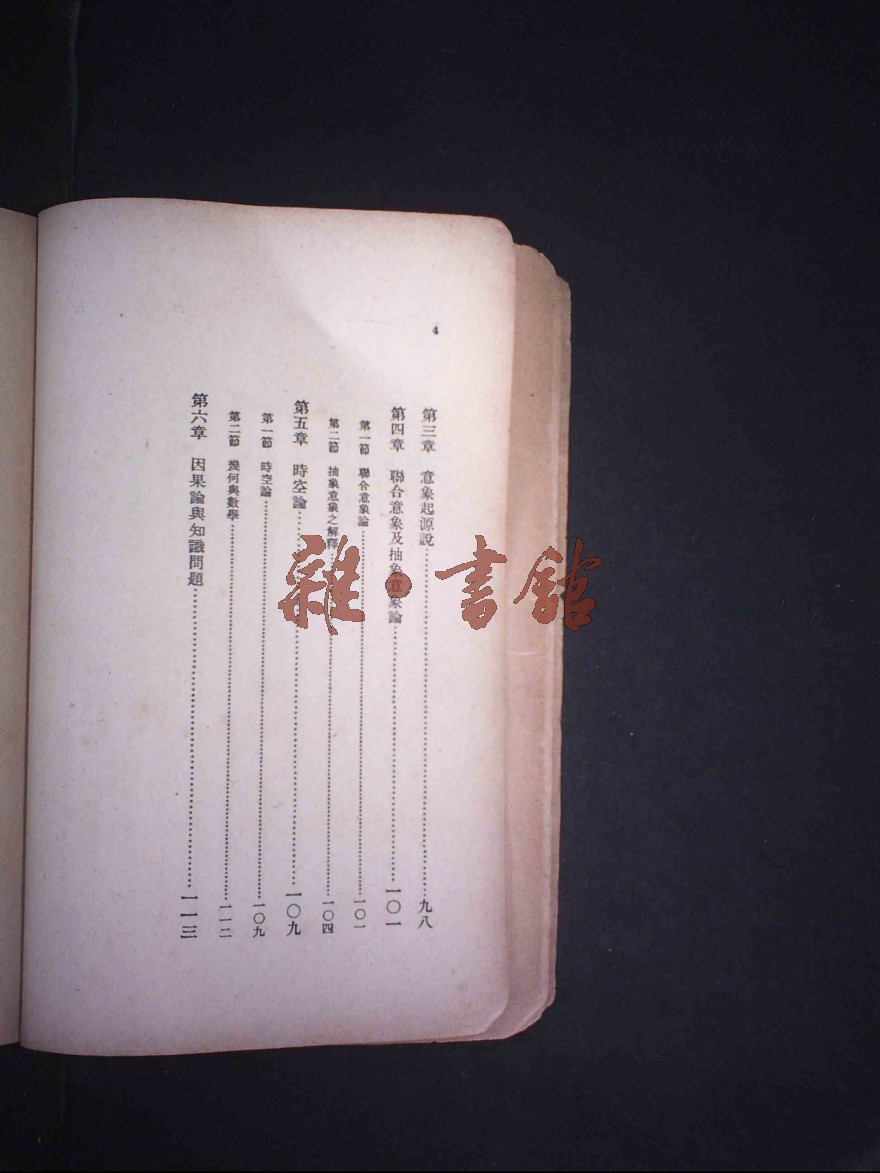 4
第三章 意象起源說……九八
第四章 聯合意象及抽象意象論……一〇一
第一節 聯合意象論……一〇一
第二節 抽象意象之解釋……一〇四
第五章 時空論……一〇九
第一節 時空論……一〇九
第二節 幾何與數學……一一二
第六章 因果論與知識問題……一一三
雜·書館